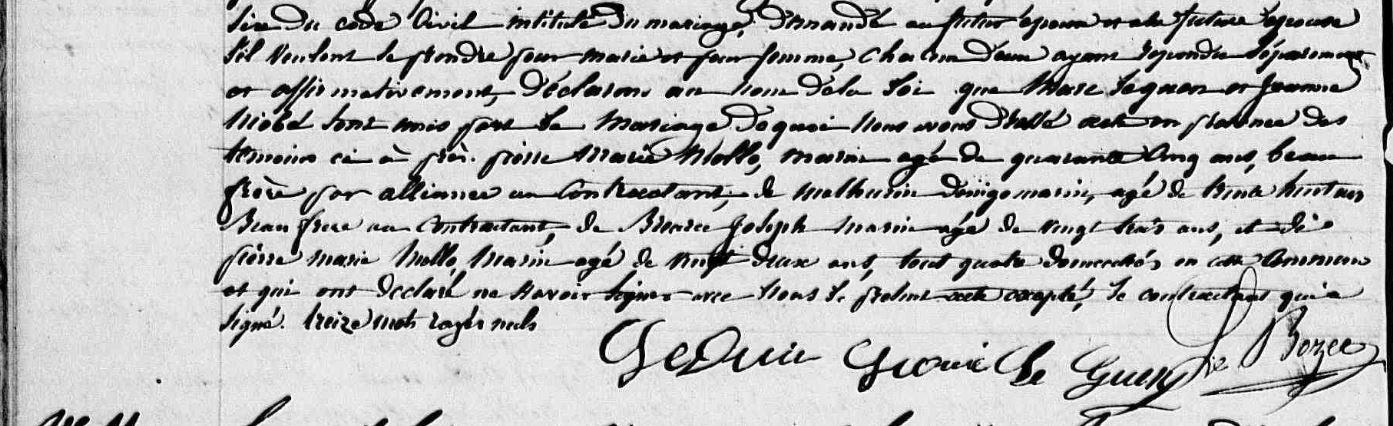 du code Civil intitulé du mariage, demandé au futur époux et a la future épouse
s'il veulent se prendre pour mari et pour femme, chacun d'eux ayant répondu séparément
et affirmativement, déclarons au nom de la loi que Marc Leguen et Jeanne
sont unis par le mariage de quoi nous avons dressé acte en présence des
temoins ci à près. pierre Marie Mollo, marin agé de quarante Cinq ans, beau
frère par alliance au Contractant, de Mathurin marin, agé de trente huit ans
Beau frere au Contractant, de Joseph marin agé de vingt trois ans, et de
pierre marie Mollo, Marin agé de vingt deux ans, tout quatre domiciliés en cette Commune
et qui ont declaré ne savoir signer avec Nous le présent acte excepté, le contractant qui a
signé. treize mots rayés nuls
Le Guen Le Bozec